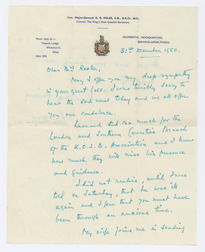 From Major-General E. G. MILES, C.B., D.S.O., M.C.,
Colonel The King's Own Scottish Borderers
REGIMENTAL HEADQUARTERS,
BERWICK-UPON-TWEED.
31st December 1950.
Dear Mrs
May I offer you my deep sympathy
in your great loss. I was terribly sorry to
hear the sad news today and we all offer
you our condolence.
did so much for the
London and Southern Counties Branch
of the K.O.S.B. Association and I know
how much they will miss his presence
and guidance.
I did not realise, until
tell on Saturday, that he was ill
again and I fear that you must have
been through an anxious time.
My wife joins me in sending